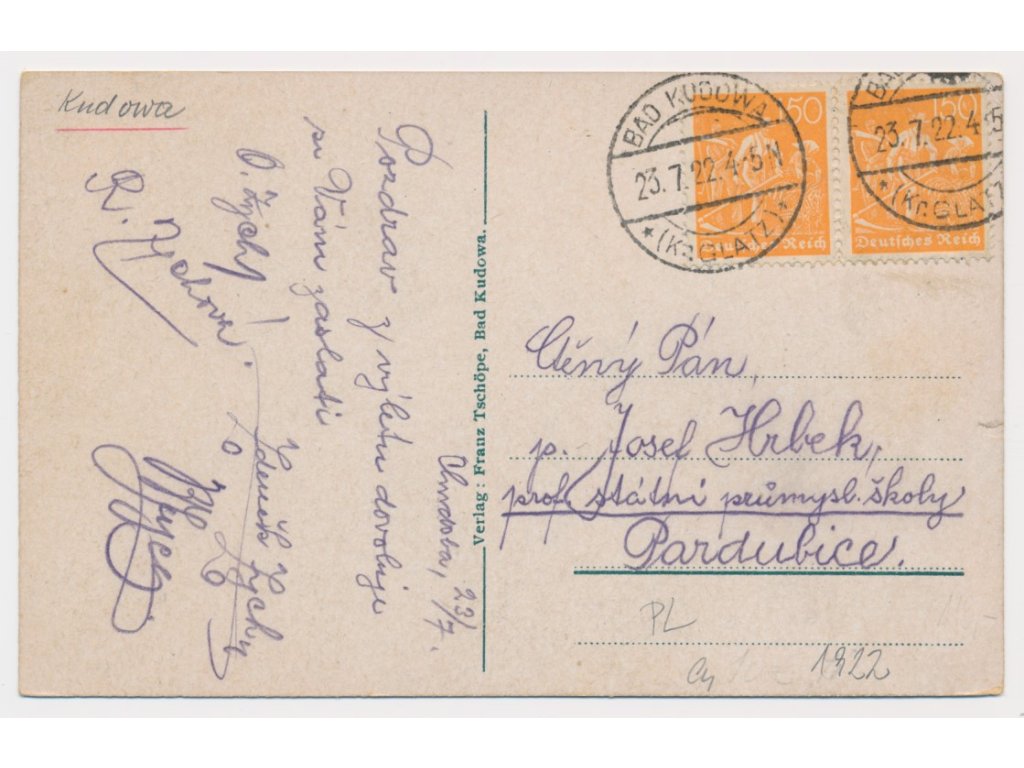 Kudowa
Pozdrav z výletu dovoluje
si Vám zaslati
O. Zych
R. Zychová.
Zdeněk Zycha
23/7.
Verlag: Franz Tschöpe, Bad Kudowa.
BAD KUDOWA
23.7.22.4-5N
*(Kr. GLATZ)*
BA
23.7.22.4-5
*(Kr. GLATZ
150
Deutsches Reich
150
Deutsches Reich
Ctěný Pán,
p. Josef Hrbek,
prof. státní průmysl. školy
Pardubice.
PL
1922